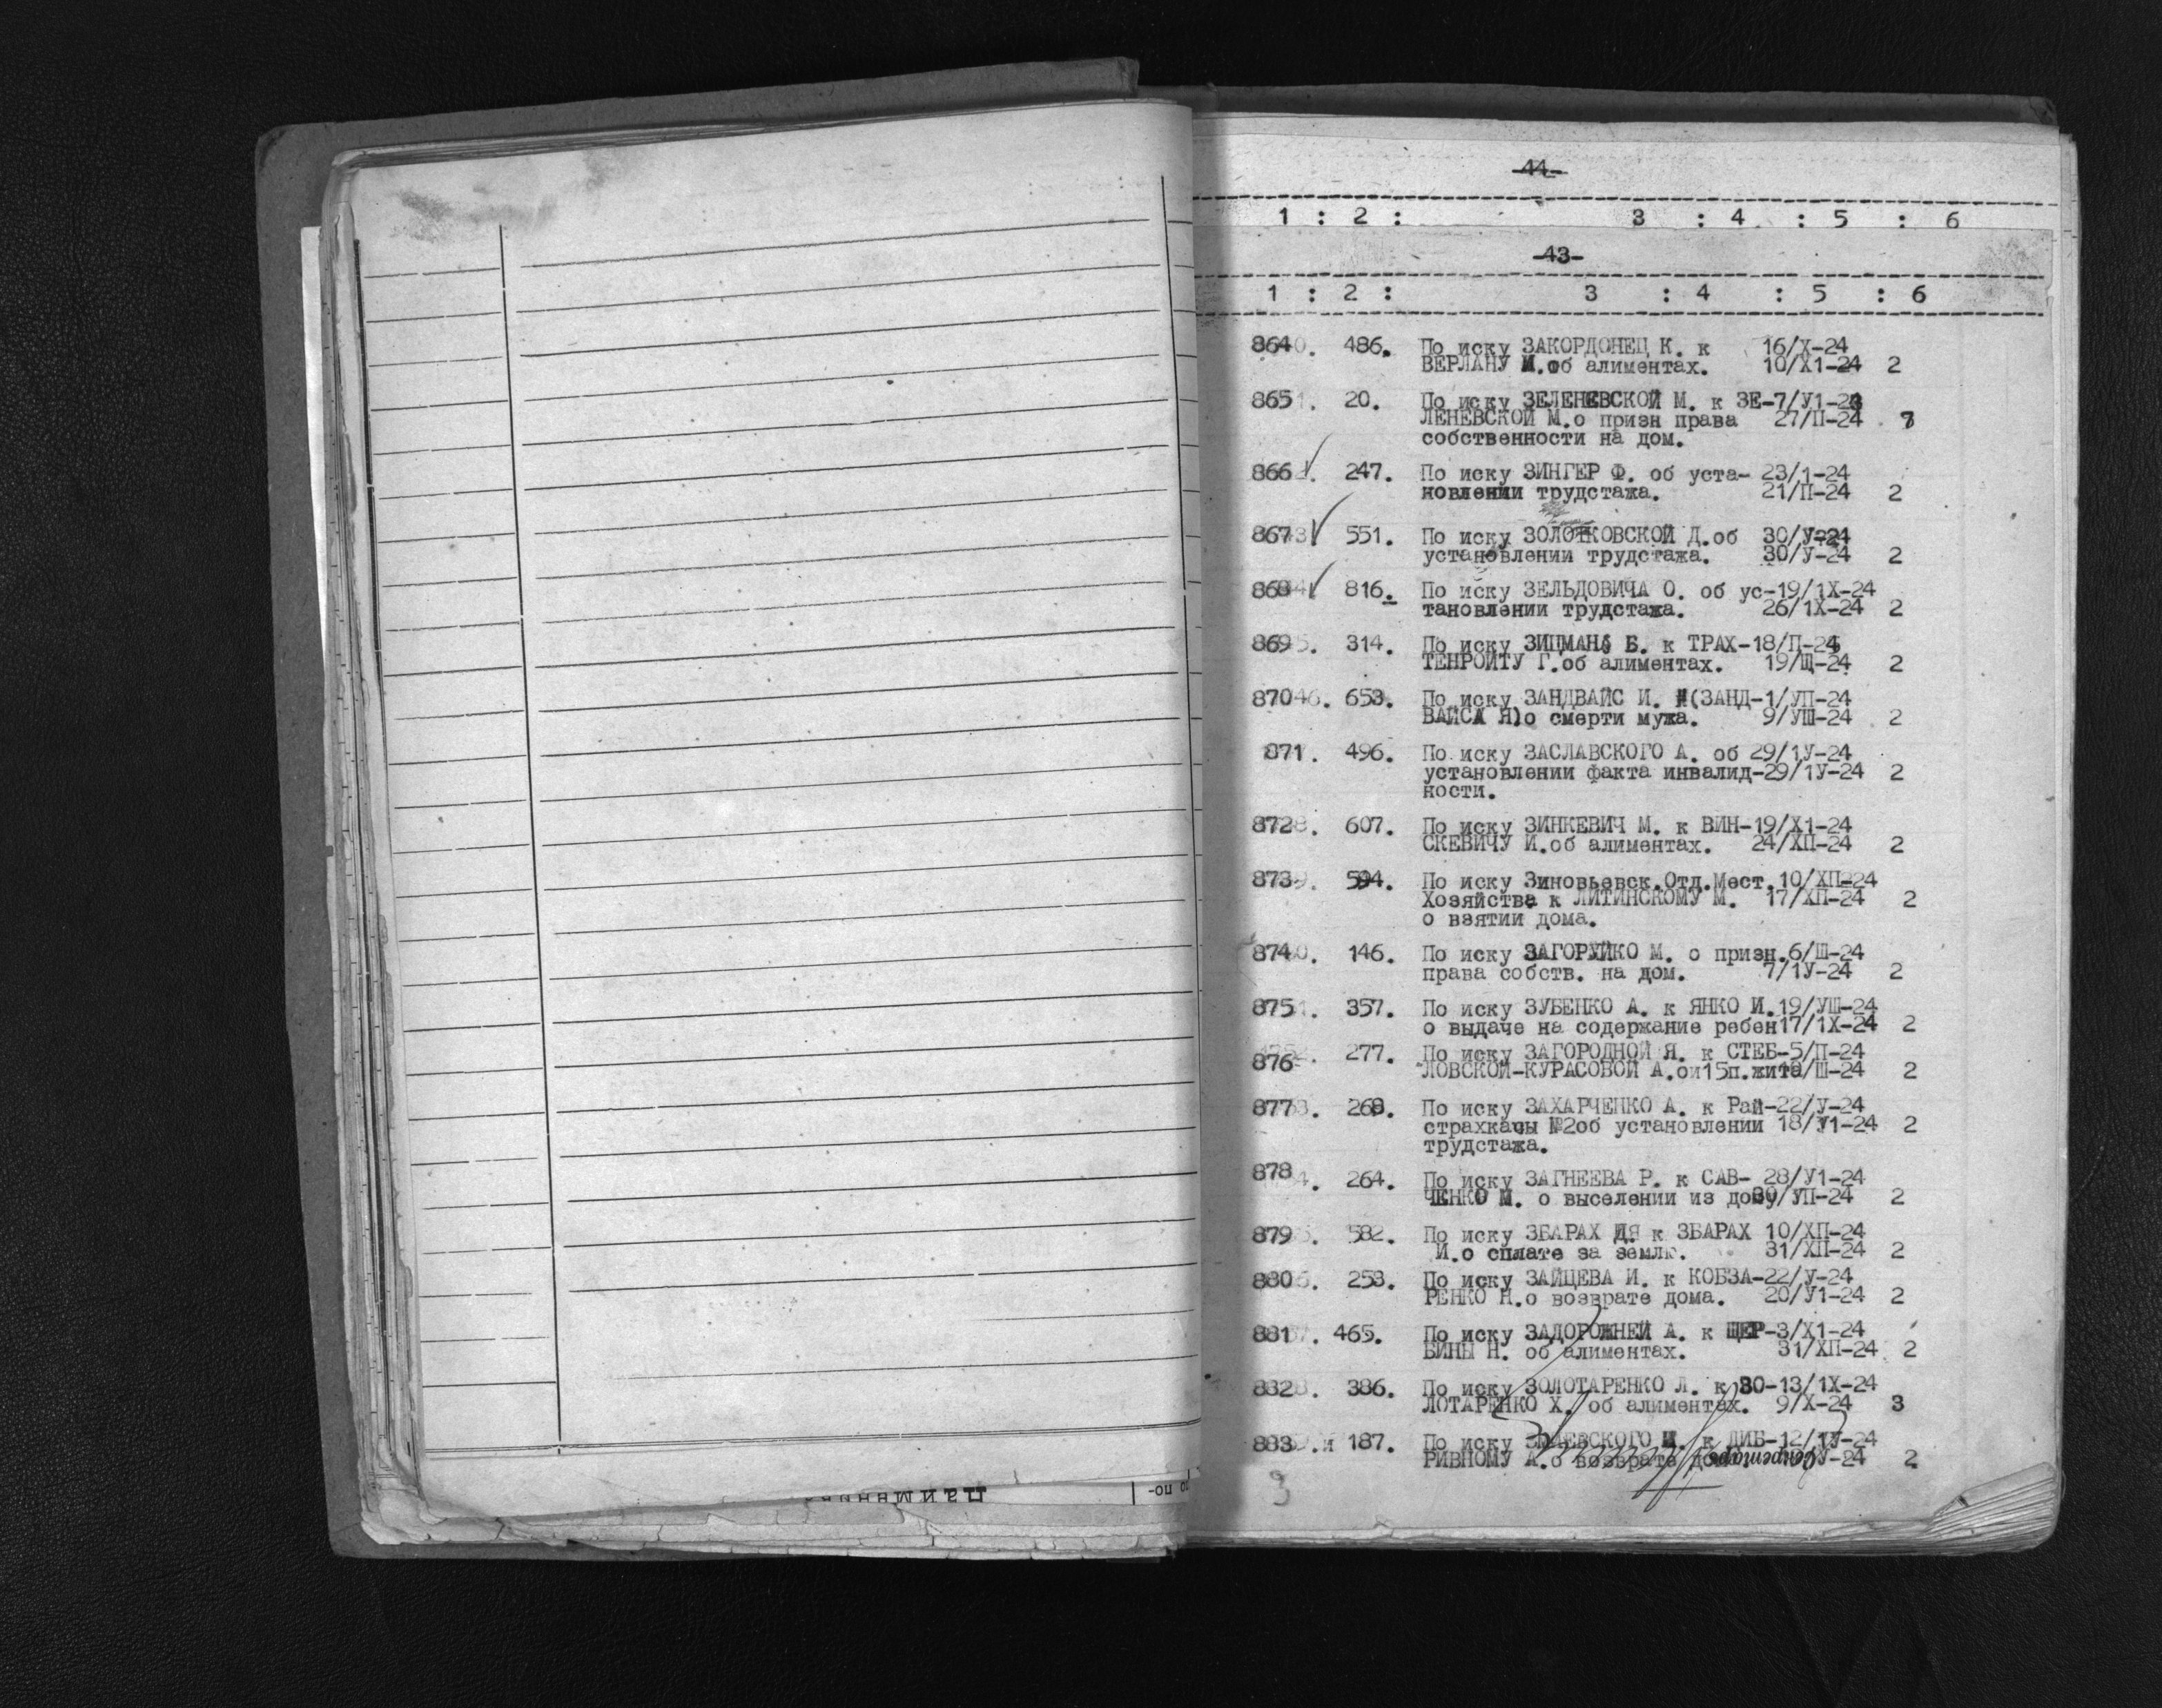 -44-
1 : 2 : 3 : 4 : 5 : 6
-43-
1 : 2 : 3 : 4 : 5 : 6
864. 486. По иску ЗАКОРДОНЕЦ К. к 16/X-24
ВЕРЛАНУ И.об алиментах. 10/X1-24 2
865. 20. По иску ЗЕЛЕНЕВСКОЙ М. к ЗЕ-7/У1-23
ЛЕНЕВСКОЙ М.о призн права 27/П-24 7
собственности на дом.
866. 247. По иску ЗИНГЕР Ф. об уста- 23/1-24
новлении трудстажа. 21/П-24 2
867 551. По иску ЗОЛОТКОВСКОЙ Д.об 30/У-24
установлении трудстажа. 30/У-24 2
868 816. По иску ЗЕЛЬДОВИЧА О. об ус-19/1X-24
тановлении трудстажа. 26/1X-24 2
869. 314. По иску ЗИЦМАНА Б. к ТРАХ-18/П-24
ТЕНРОЙТУ Г.об алиментах. 19/Щ-24 2
870. 653. По иску ЗАНДВАЙС И. (ЗАНД-1/УП-24
ВАЙСА Я)о смерти мужа. 9/УШ-24 2
871. 496. По иску ЗАСЛАВСКОГО А. об 29/1У-24
установлении факта инвалид-29/1У-24 2
ности.
872. 607. По иску ЗИНКЕВИЧ М. к ВИН-19/X1-24
СКЕВИЧУ И.об алиментах. 24/XП-24 2
873. 594. По иску Зиновьевск.Отд.Мест.10/XП-24
Хозяйства к ЛИТИНСКОМУ М. 17/XП-24 2
о взятии дома.
874. 146. По иску ЗАГОРУЙКО М. о призн.6/Ш-24
права собств. на дом. 7/1У-24 2
875. 357. По иску ЗУБЕНКО А. к ЯНКО И.19/УШ-24
о выдаче на содержание ребен17/1X-24 2
876. 277. По иску ЗАГОРОДНОЙ Я. к СТЕБ-5/П-24
ЛОВСКОЙ-КУРАСОВОЙ 15п.жита /Ш-24 2
877. 268. По иску ЗАХАРЧЕНКО А. к Рай-22/У-24
страхкасы №2об установлении 18/У1-24 2
трудстажа.
878. 264. По иску ЗАГНЕЕВА Р. к САВ- 28/У1-24
ЧЕНКО М. о выселении из дому 30/УП-24 2
879. 582. По иску ЗБАРАХ к ЗБАРАХ 10/XП-24
И.о сплате за землю. 31/XП-24 2
880. 253. По иску ЗАЙЦЕВА И. к КОБЗА-22/У-24
РЕНКО Н.о возврате дома. 20/У1-24 2
881. 465. По иску ЗАДОРОЖНЕЙ А. к ЩЕР-3/X1-24
БИНЫ Н. об алиментах. 31/XП-24 2
882. 386. По иску ЗОЛОТАРЕНКО Л. к ЗО-13/1X-24
ЛОТАРЕНКО Х. об алиментах. 9/X-24 3
883. 187. По иску к ДИБ-12/1У-24
РИВНОМУ А.о возврате У-24 2
3